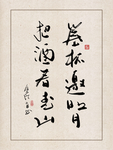 舉杯邀明月
把酒看青山